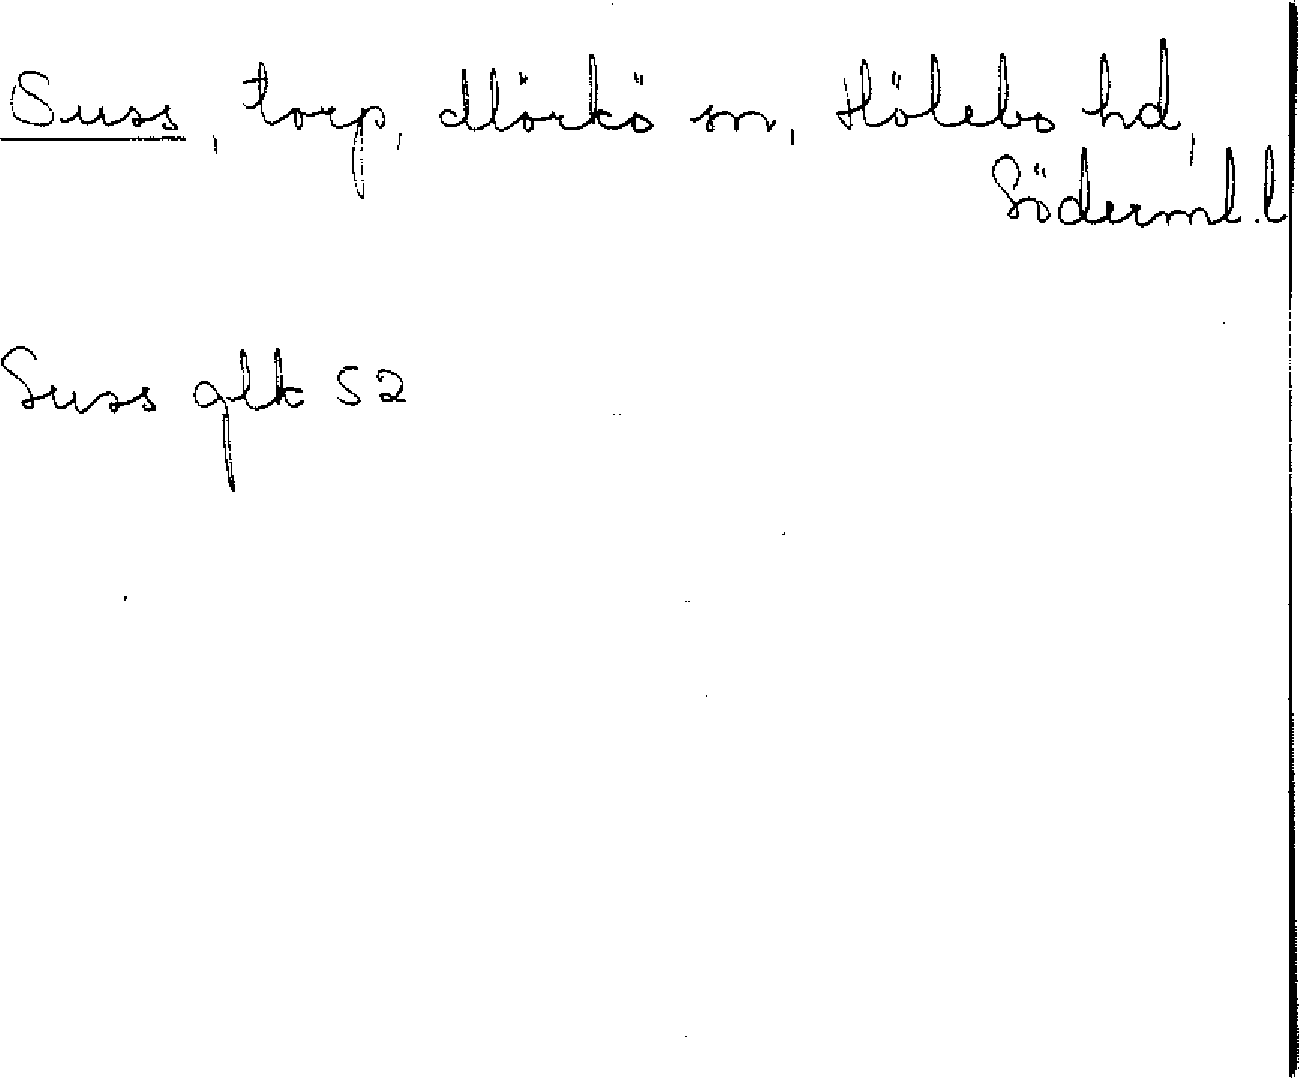 Suss, torp, Mörkö sn, Hölebo hd,
Söderml. l
Suss glk 52